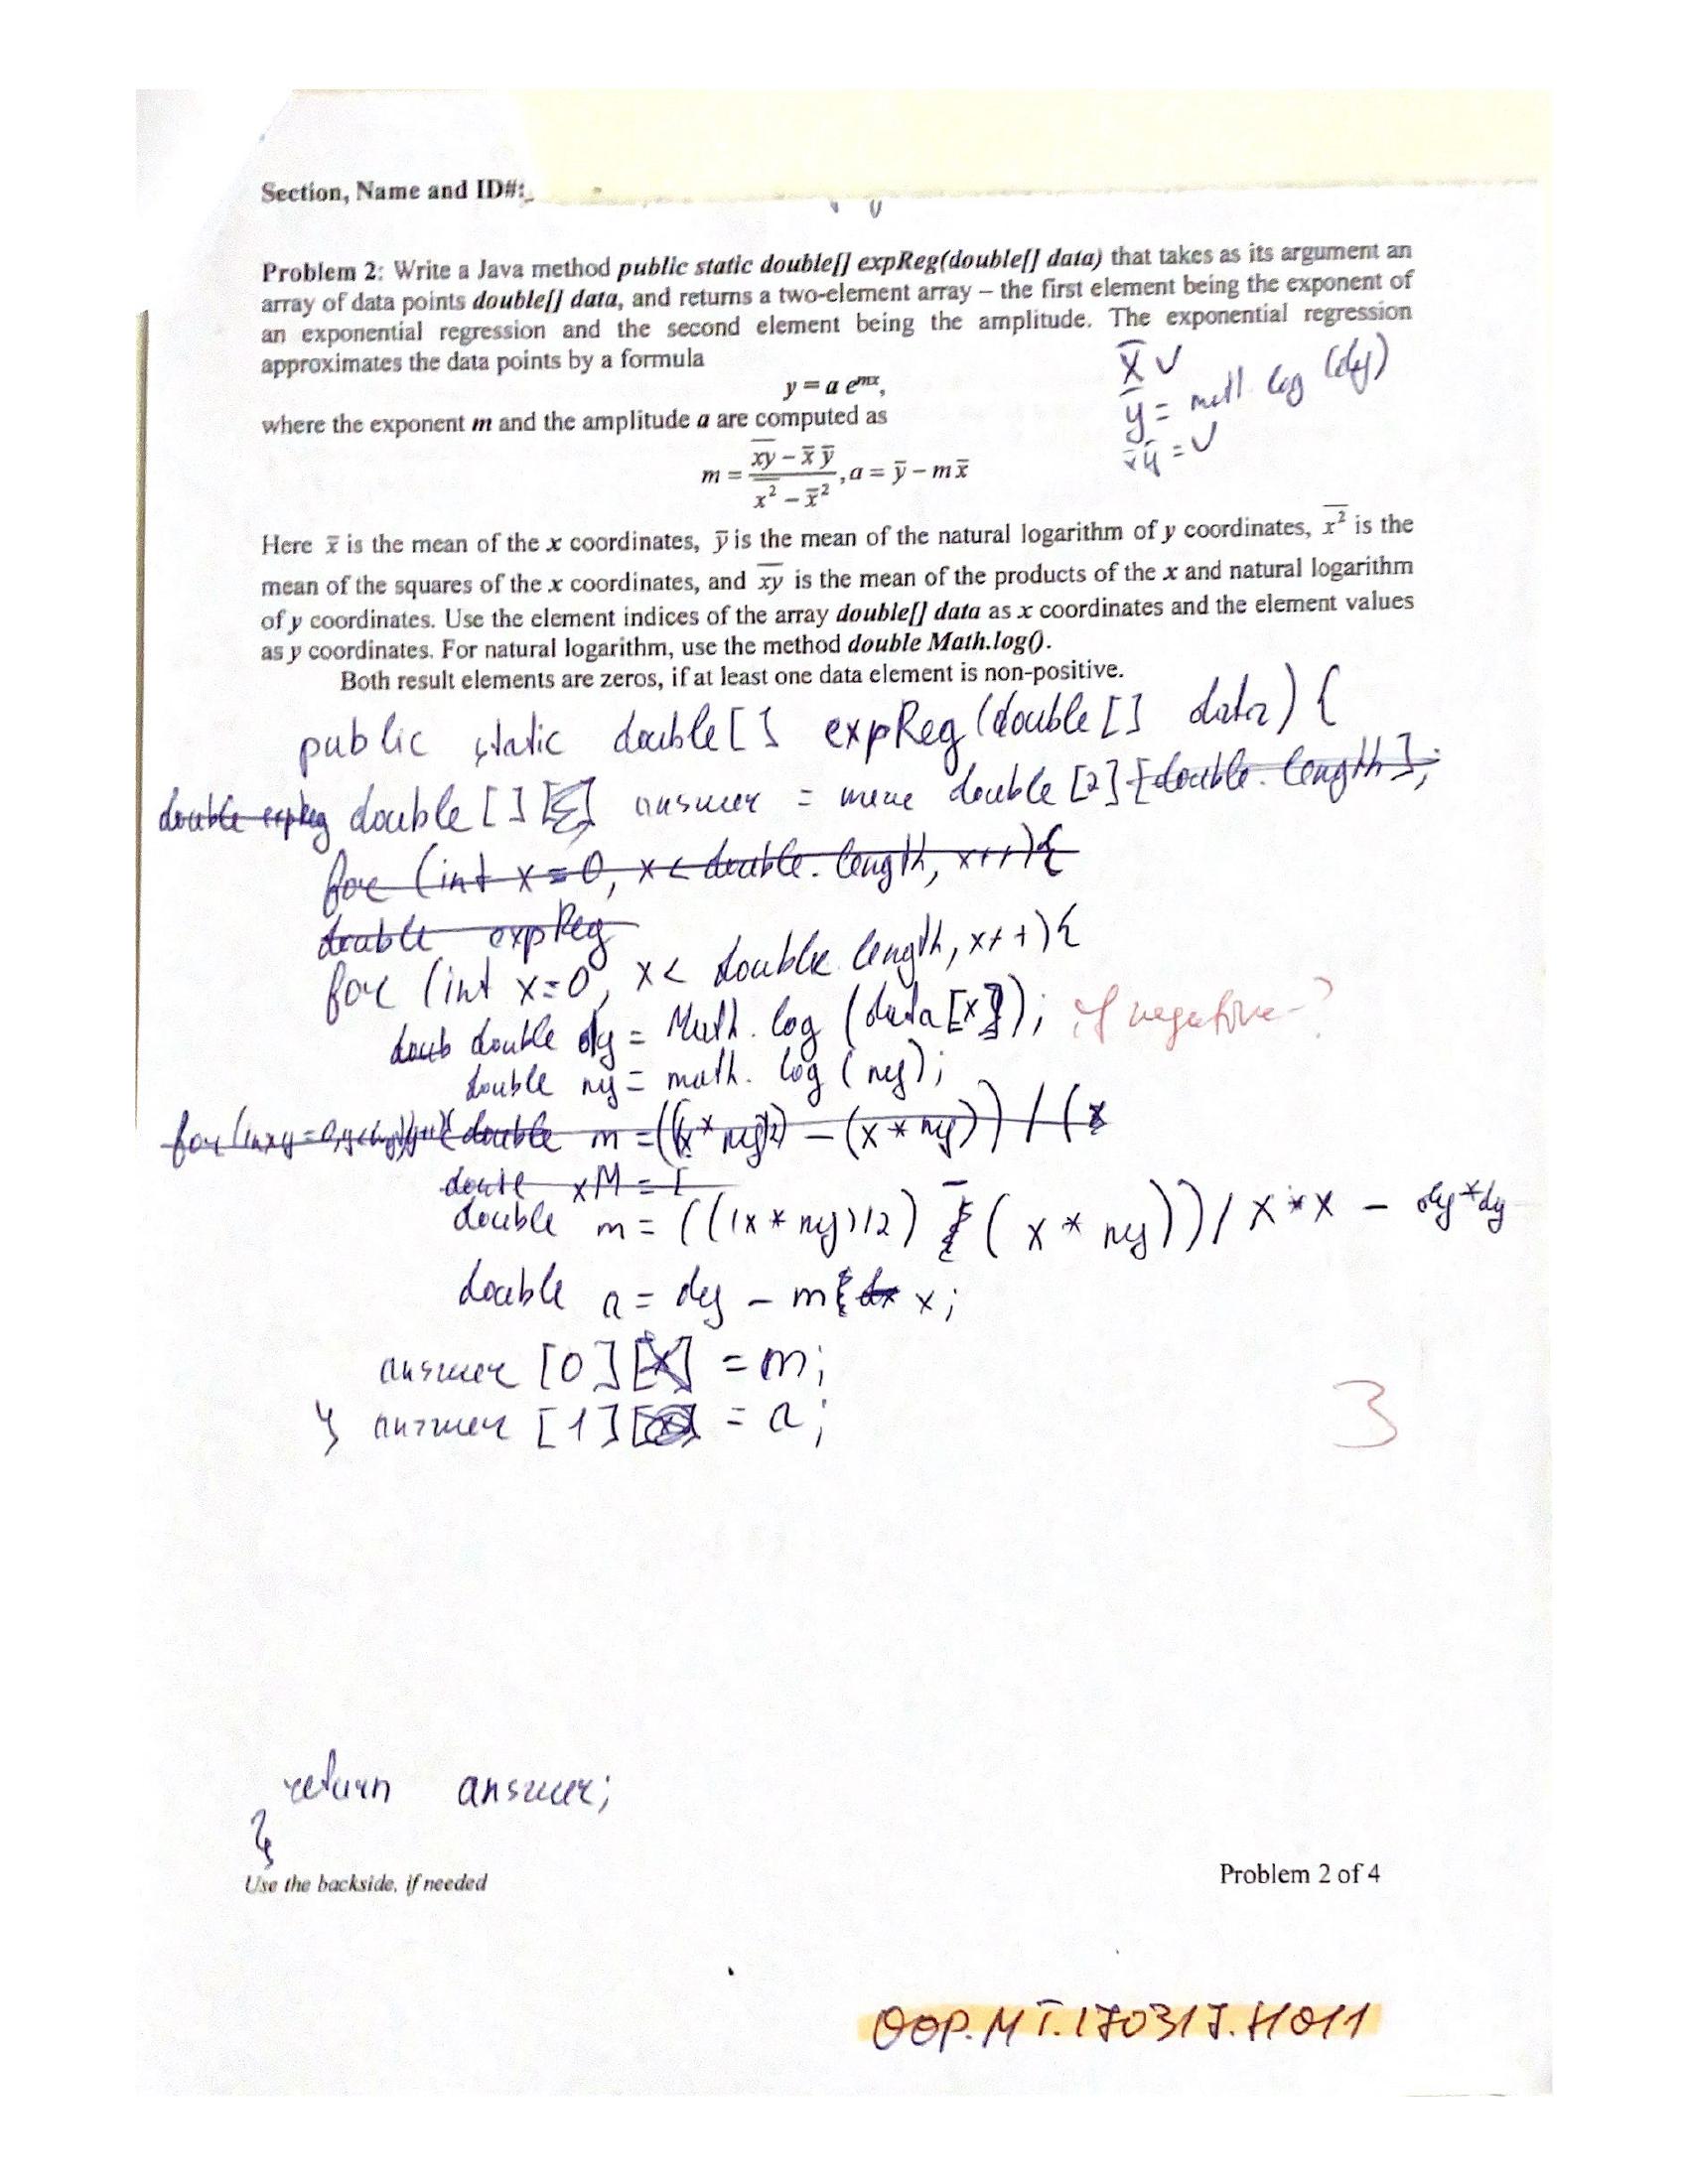 Section, Name and ID#:
Problem 2: Write a Java method public static double[] expReg(double[] data) that takes as its argument an
array of data points double[] data, and returns a two-element array – the first element being the exponent of
an exponential regression and the second element being the amplitude. The exponential regression
approximates the data points by a formula
y = a e^mx,
x̄ ✓
ȳ = math. log (dy)
x̄ȳ = ✓
where the exponent m and the amplitude a are computed as
m = (x̅y̅ – x̄ ȳ) / (x̅²̅ – x̄²), a = ȳ – m x̄
Here x̄ is the mean of the x coordinates, ȳ is the mean of the natural logarithm of y coordinates, x̅²̅ is the
mean of the squares of the x coordinates, and x̅y̅ is the mean of the products of the x and natural logarithm
of y coordinates. Use the element indices of the array double[] data as x coordinates and the element values
as y coordinates. For natural logarithm, use the method double Math.log().
Both result elements are zeros, if at least one data element is non-positive.
public static double[] expReg(double[] data) {
double expReg double [] answer = new double [2] [double. length];
for (int x=0, x < double. length, x++){
double expReg
for (int x=0, x < double length, x++){
doub double dy = Math. log (data[x]); if negative ?
double ny = math. log (ny);
double m = ((x* ny)2) – (x * ny)) / (x
double xM = [
double m = (((x * ny)/2) – (x * ny)) / x*x – dy*dy
double a = dy – m x;
answer [0][x] = m;
} answer [1] = a;
3
return answer;
}
Use the backside, if needed
Problem 2 of 4
OOP.MT.170317.H011